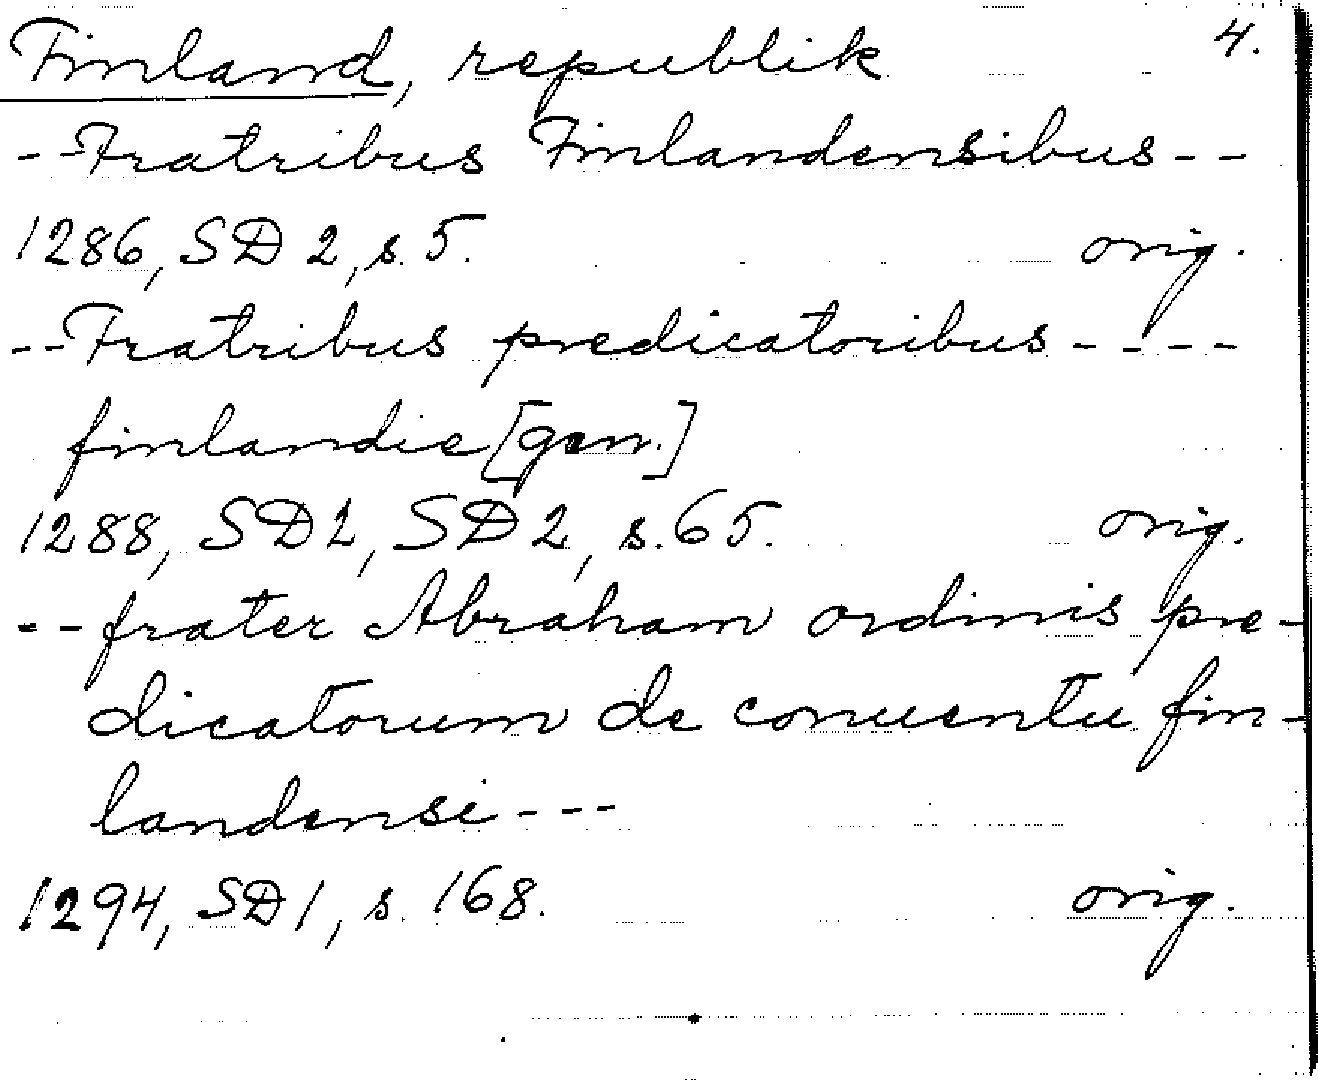 Finland, republik 4.
--Fratribus Finlandensibus--
1286, SD 2, s. 5. orig.
--Fratribus predicatoribus----
finlandie [gen.]
1288, SD 2, SD 2, s. 65. orig.
--frater Abraham ordinis pre-
dicatorum de conuentu fin-
landensi---
1294, SD 1, s. 168. orig.